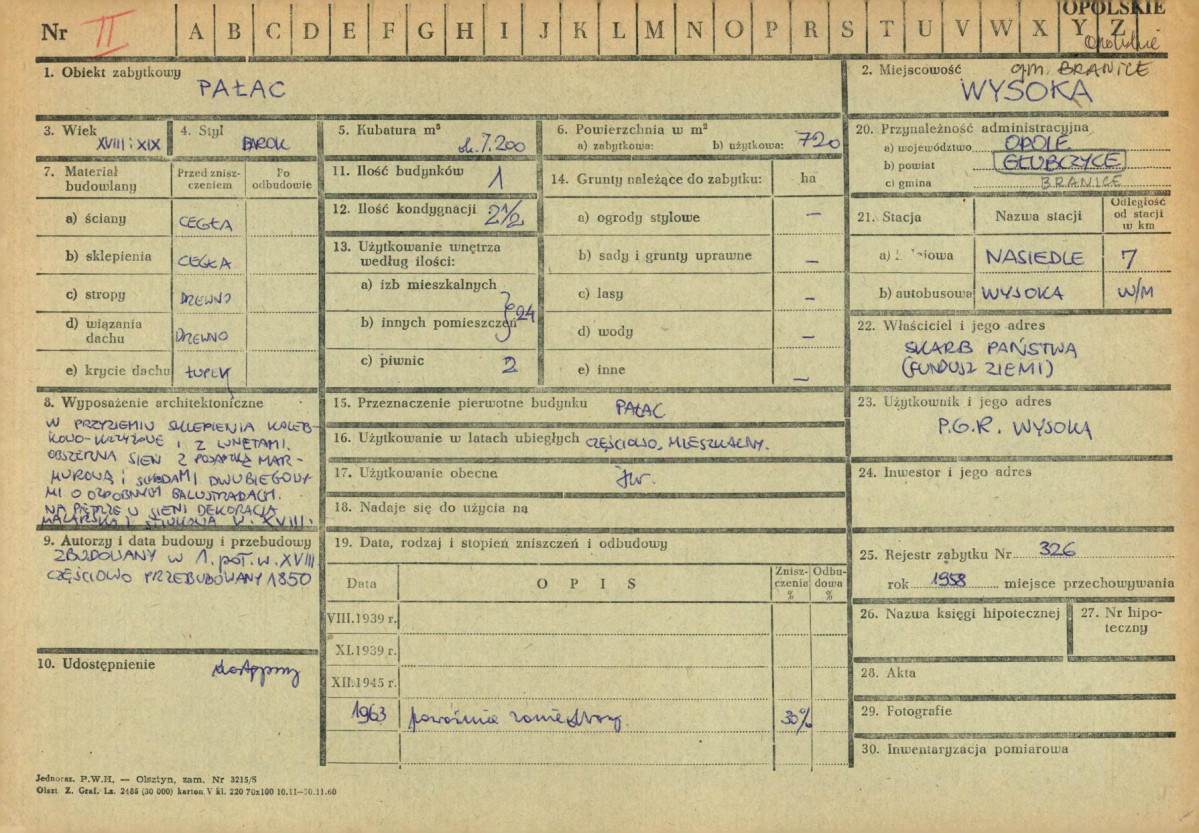 OPOLSKIE
Nr II A B C D E F G H I J K L M N O P R S T U V W X Y Z
opolskie
1. Obiekt zabytkowy
PAŁAC
2. Miejscowość gm. BRANICE
WYSOKA
3. Wiek
XVIII i XIX
4. Styl
BAROK
5. Kubatura m³
ok. 7.200
6. Powierzchnia w m²
a) zabytkowa: b) użytkowa: 720
7. Materiał budowlany
Przed zniszczeniem
Po odbudowie
a) ściany CEGŁA
b) sklepienia CEGŁA
c) stropy DREWNO
d) wiązania dachu DREWNO
e) krycie dachu ŁUPEK
8. Wyposażenie architektoniczne
W PRZYZIEMIU SKLEPIENIA KOLEB-
KOWO-KRZYŻOWE I Z LUNETAMI.
OBSZERNA SIEŃ Z POSADZKĄ MAR-
MUROWĄ I SCHODAMI DWUBIEGOWY-
MI O OZDOBNYCH BALUSTRADACH.
NA PIĘTRZE W SIENI DEKORACJA
MALARSKA I STIUKOWA W. XVIII.
9. Autorzy i data budowy i przebudowy
ZBUDOWANY W 1. poł. w. XVIII
CZĘŚCIOWO PRZEBUDOWANY 1850
10. Udostępnienie dostępny
11. Ilość budynków 1
12. Ilość kondygnacji 2 1/2
13. Użytkowanie wnętrza
według ilości:
a) izb mieszkalnych
b) innych pomieszczeń } 24
c) piwnic 2
14. Grunty należące do zabytku: ha
a) ogrody stylowe –
b) sady i grunty uprawne –
c) lasy –
d) wody –
e) inne –
15. Przeznaczenie pierwotne budynku PAŁAC
16. Użytkowanie w latach ubiegłych CZĘŚCIOWO, MIESZKALNY.
17. Użytkowanie obecne Jw.
18. Nadaje się do użycia na
19. Data, rodzaj i stopień zniszczeń i odbudowy
Data OPIS Zniszczenia % Odbudowa %
VIII.1939 r.
XI.1939 r.
XII.1945 r.
1963 30%
20. Przynależność administracyjna
a) województwo OPOLE
b) powiat GŁUBCZYCE
c) gmina BRANICE
21. Stacja Nazwa stacji Odległość od stacji w km
NASIEDLE 7
b) autobusowa WYSOKA W/M
22. Właściciel i jego adres
SKARB PAŃSTWA
(FUNDUSZ ZIEMI)
23. Użytkownik i jego adres
P.G.R. WYSOKA
24. Inwestor i jego adres
25. Rejestr zabytku Nr 326
rok 1958 miejsce przechowywania
26. Nazwa księgi hipotecznej
27. Nr hipoteczny
28. Akta
29. Fotografie
30. Inwentaryzacja pomiarowa
Jednoraz. P.W.H. — Olsztyn, zam. Nr 3215/S
Olszt. Z. Graf. Lz. 2486 (30 000) karton V kl. 220 70x100 10.11—30.11.60